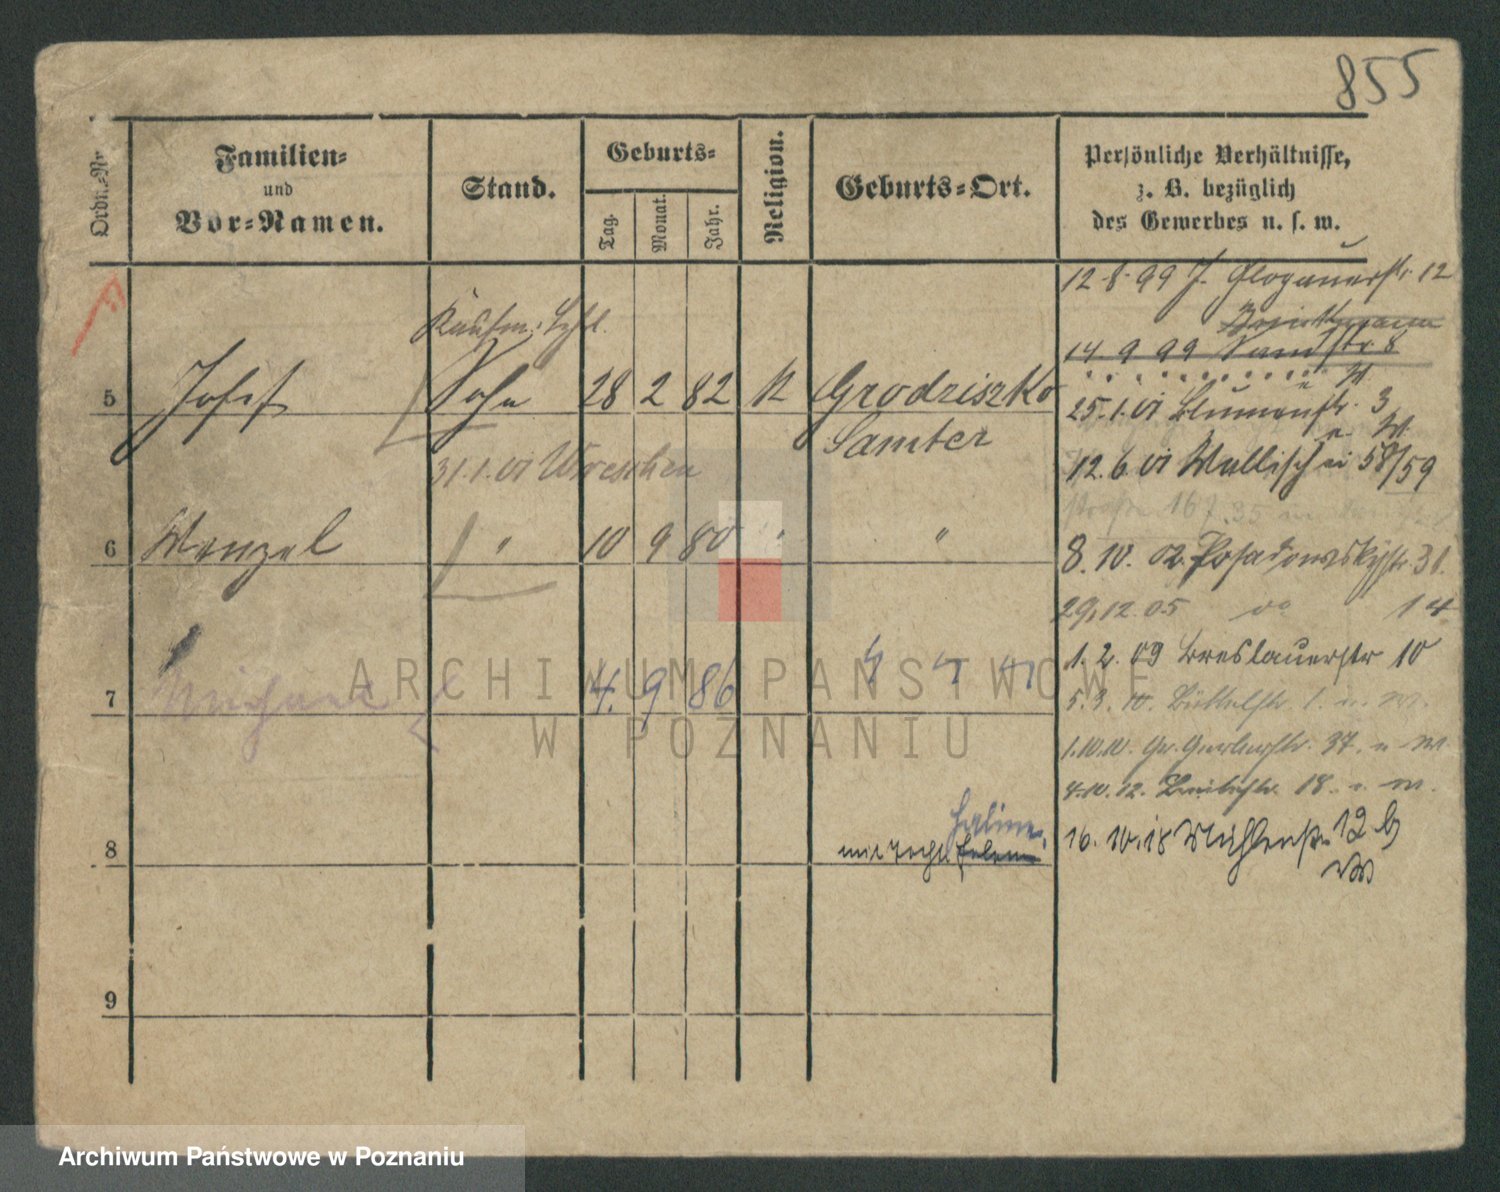 855
Ordn.-Nr.
Familien-
und
Vor-Namen.
Stand.
Geburts-
Tag.
Monat.
Jahr.
Religion.
Geburts-Ort.
Persönliche Verhältnisse,
z. B. bezüglich
des Gewerbes u. s. w.
12.8.99 J. Glogauerstr. 12
14.9.99 Sandstr. 8
5 Josef Sohn 28 2 82 K Grodziszko
Samter
25.1.01 Blumenstr. 3
31.1.01 Wreschen
12.6.01 Wallischei 58/59
6 Wenzel " 10 9 80 " "
8.10.02 Posadowskystr. 31.
29.12.05 do 14
1.2.09 Breslauerstr 10
7 Michael 4. 9 86 " " "
5.3.10. Büttelstr. 1. u. W.
1.10.10. Gr. Gerberstr. 37. u W
4.10.12. 18. u. W.
8
16.10.18 Mühlenstr. 12 b
9
ARCHIWUM PAŃSTWOWE
W POZNANIU
Archiwum Państwowe w Poznaniu